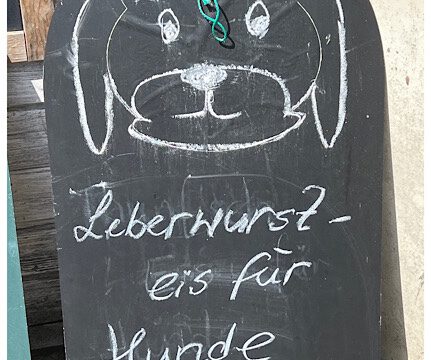 Leberwurst-
eis für
Hunde